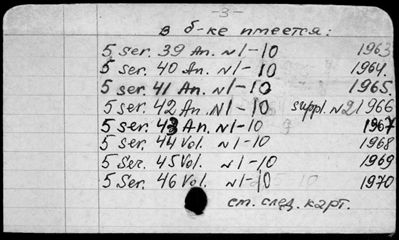 -3-
в б-ке имеется:
5 ser. 39 An. N1-10 1963
5 ser. 40 An. N1-10 1964.
5 ser. 41 An. N1-10 1965.
5 ser. 42 An. N1-10 suppl. N2 1966
5 ser. 43 An. N1-10 1967
5 ser. 44 Vol. N1-10 1968
5 Ser. 45 Vol. N1-10 1969
5 Ser. 46 Vol. N1-10 1970
см. след. карт.